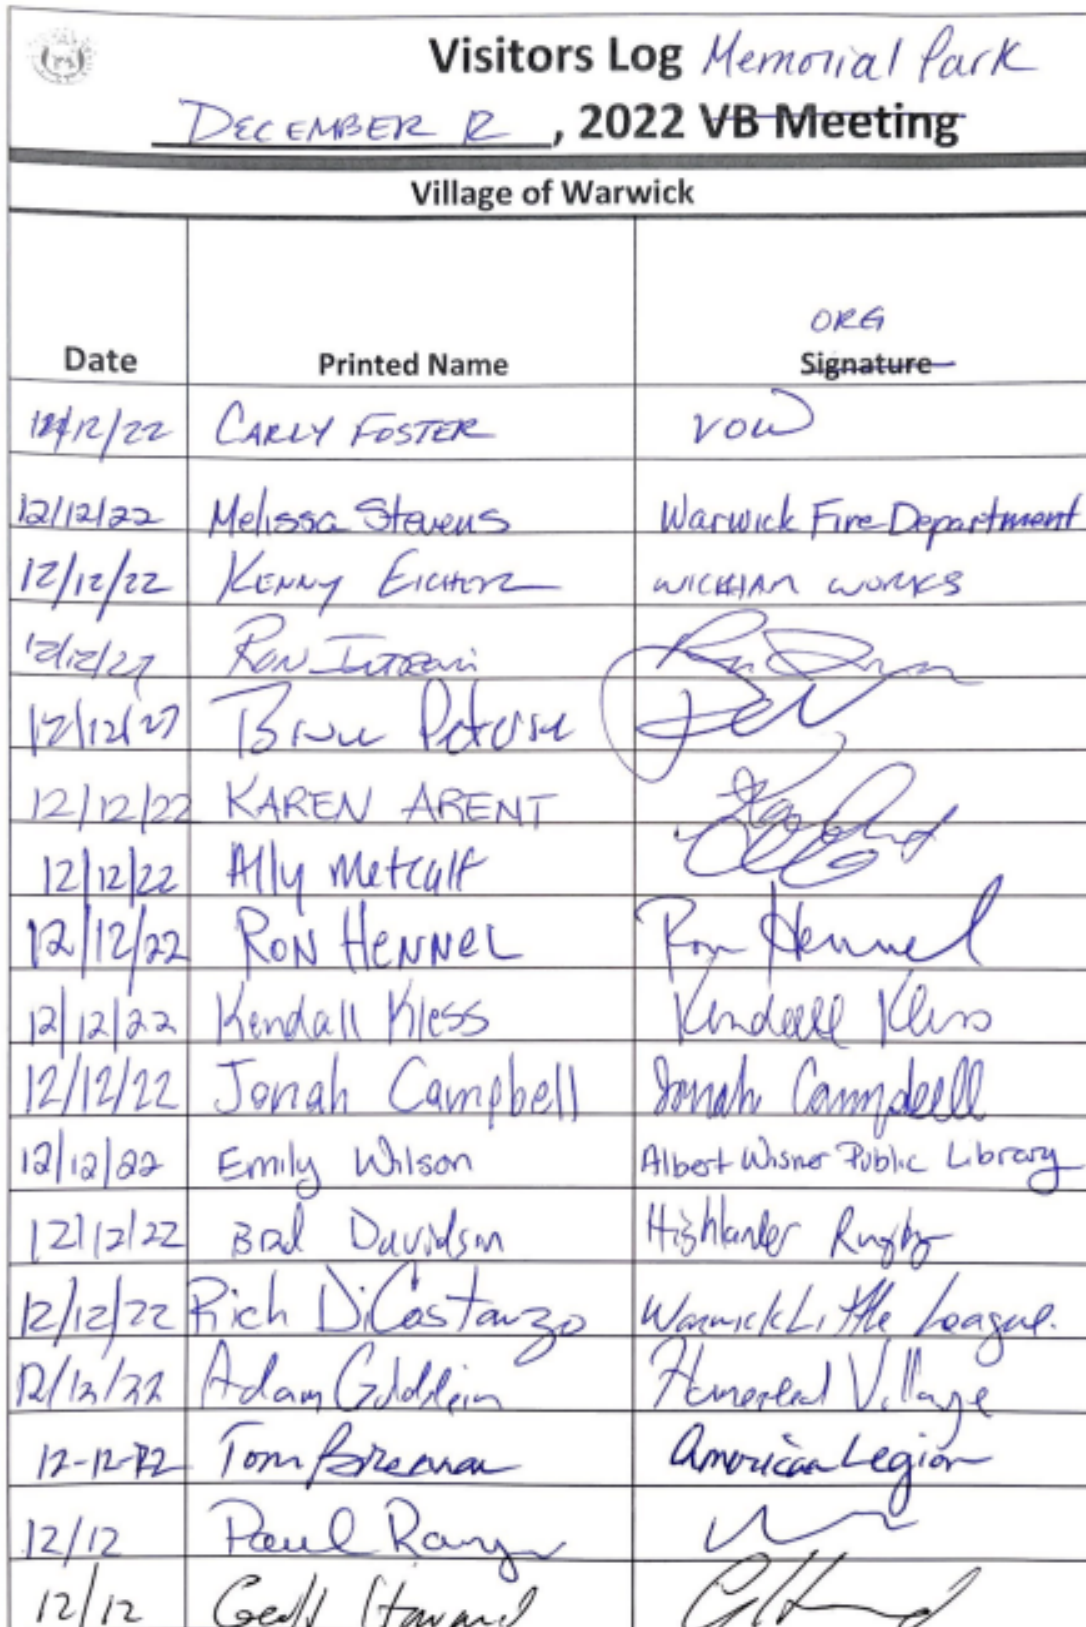 Visitors Log Memorial Park
DECEMBER 12, 2022 VB Meeting
Village of Warwick
ORG
Date Printed Name Signature
12/12/22 CARLY FOSTER VOW
12/12/22 Melissa Stevens Warwick Fire Department
12/12/22 KENNY WICKHAM WORKS
12/12/22 RON
12/12/22
12/12/22 KAREN ARENT
12/12/22 Ally Metcalf
12/12/22 RON HENNEL Ron Hennel
12/12/22 Kendall Kless Kendall Kless
12/12/22 Jonah Campbell Jonah Campbell
12/12/22 Emily Wilson Albert Wisner Public Library
12/12/22 Brad Davidson Highlander Rugby
12/12/22 Rich DiCostanzo Warwick Little League.
12/12/22 Adam Village
12-12-22 Tom American Legion
12/12 Paul
12/12 Geoff Howard